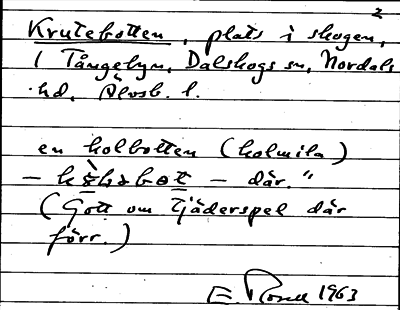 2
Krutebotten, plats i skogen,
i Tångebyn, Dalskogs sn, Nordals
hd, Älvsb. l.
en kolbotten (kolmila)
— där."
(Gott om Tjäderspel där
förr.)
E. Rosell 1963